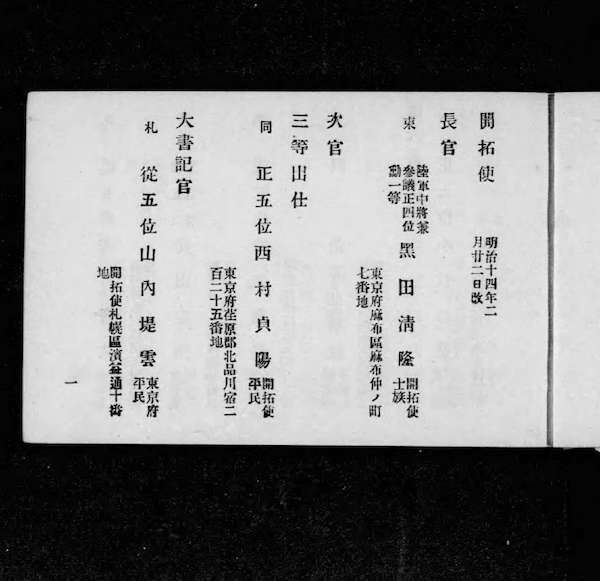 開拓使
明治十四年二
月廿二日改
長官
東
陸軍中將兼
參議正四位
勳一等
黑田清隆
開拓使
士族
東京府麻布區麻布仲ノ町
七番地
次官
三等出仕
同 正五位西村貞陽
開拓使
平民
東京府荏原郡北品川宿二
百二十五番地
大書記官
札 從五位山內堤雲
東京府
平民
開拓使札幌區濱益通十番
地
一